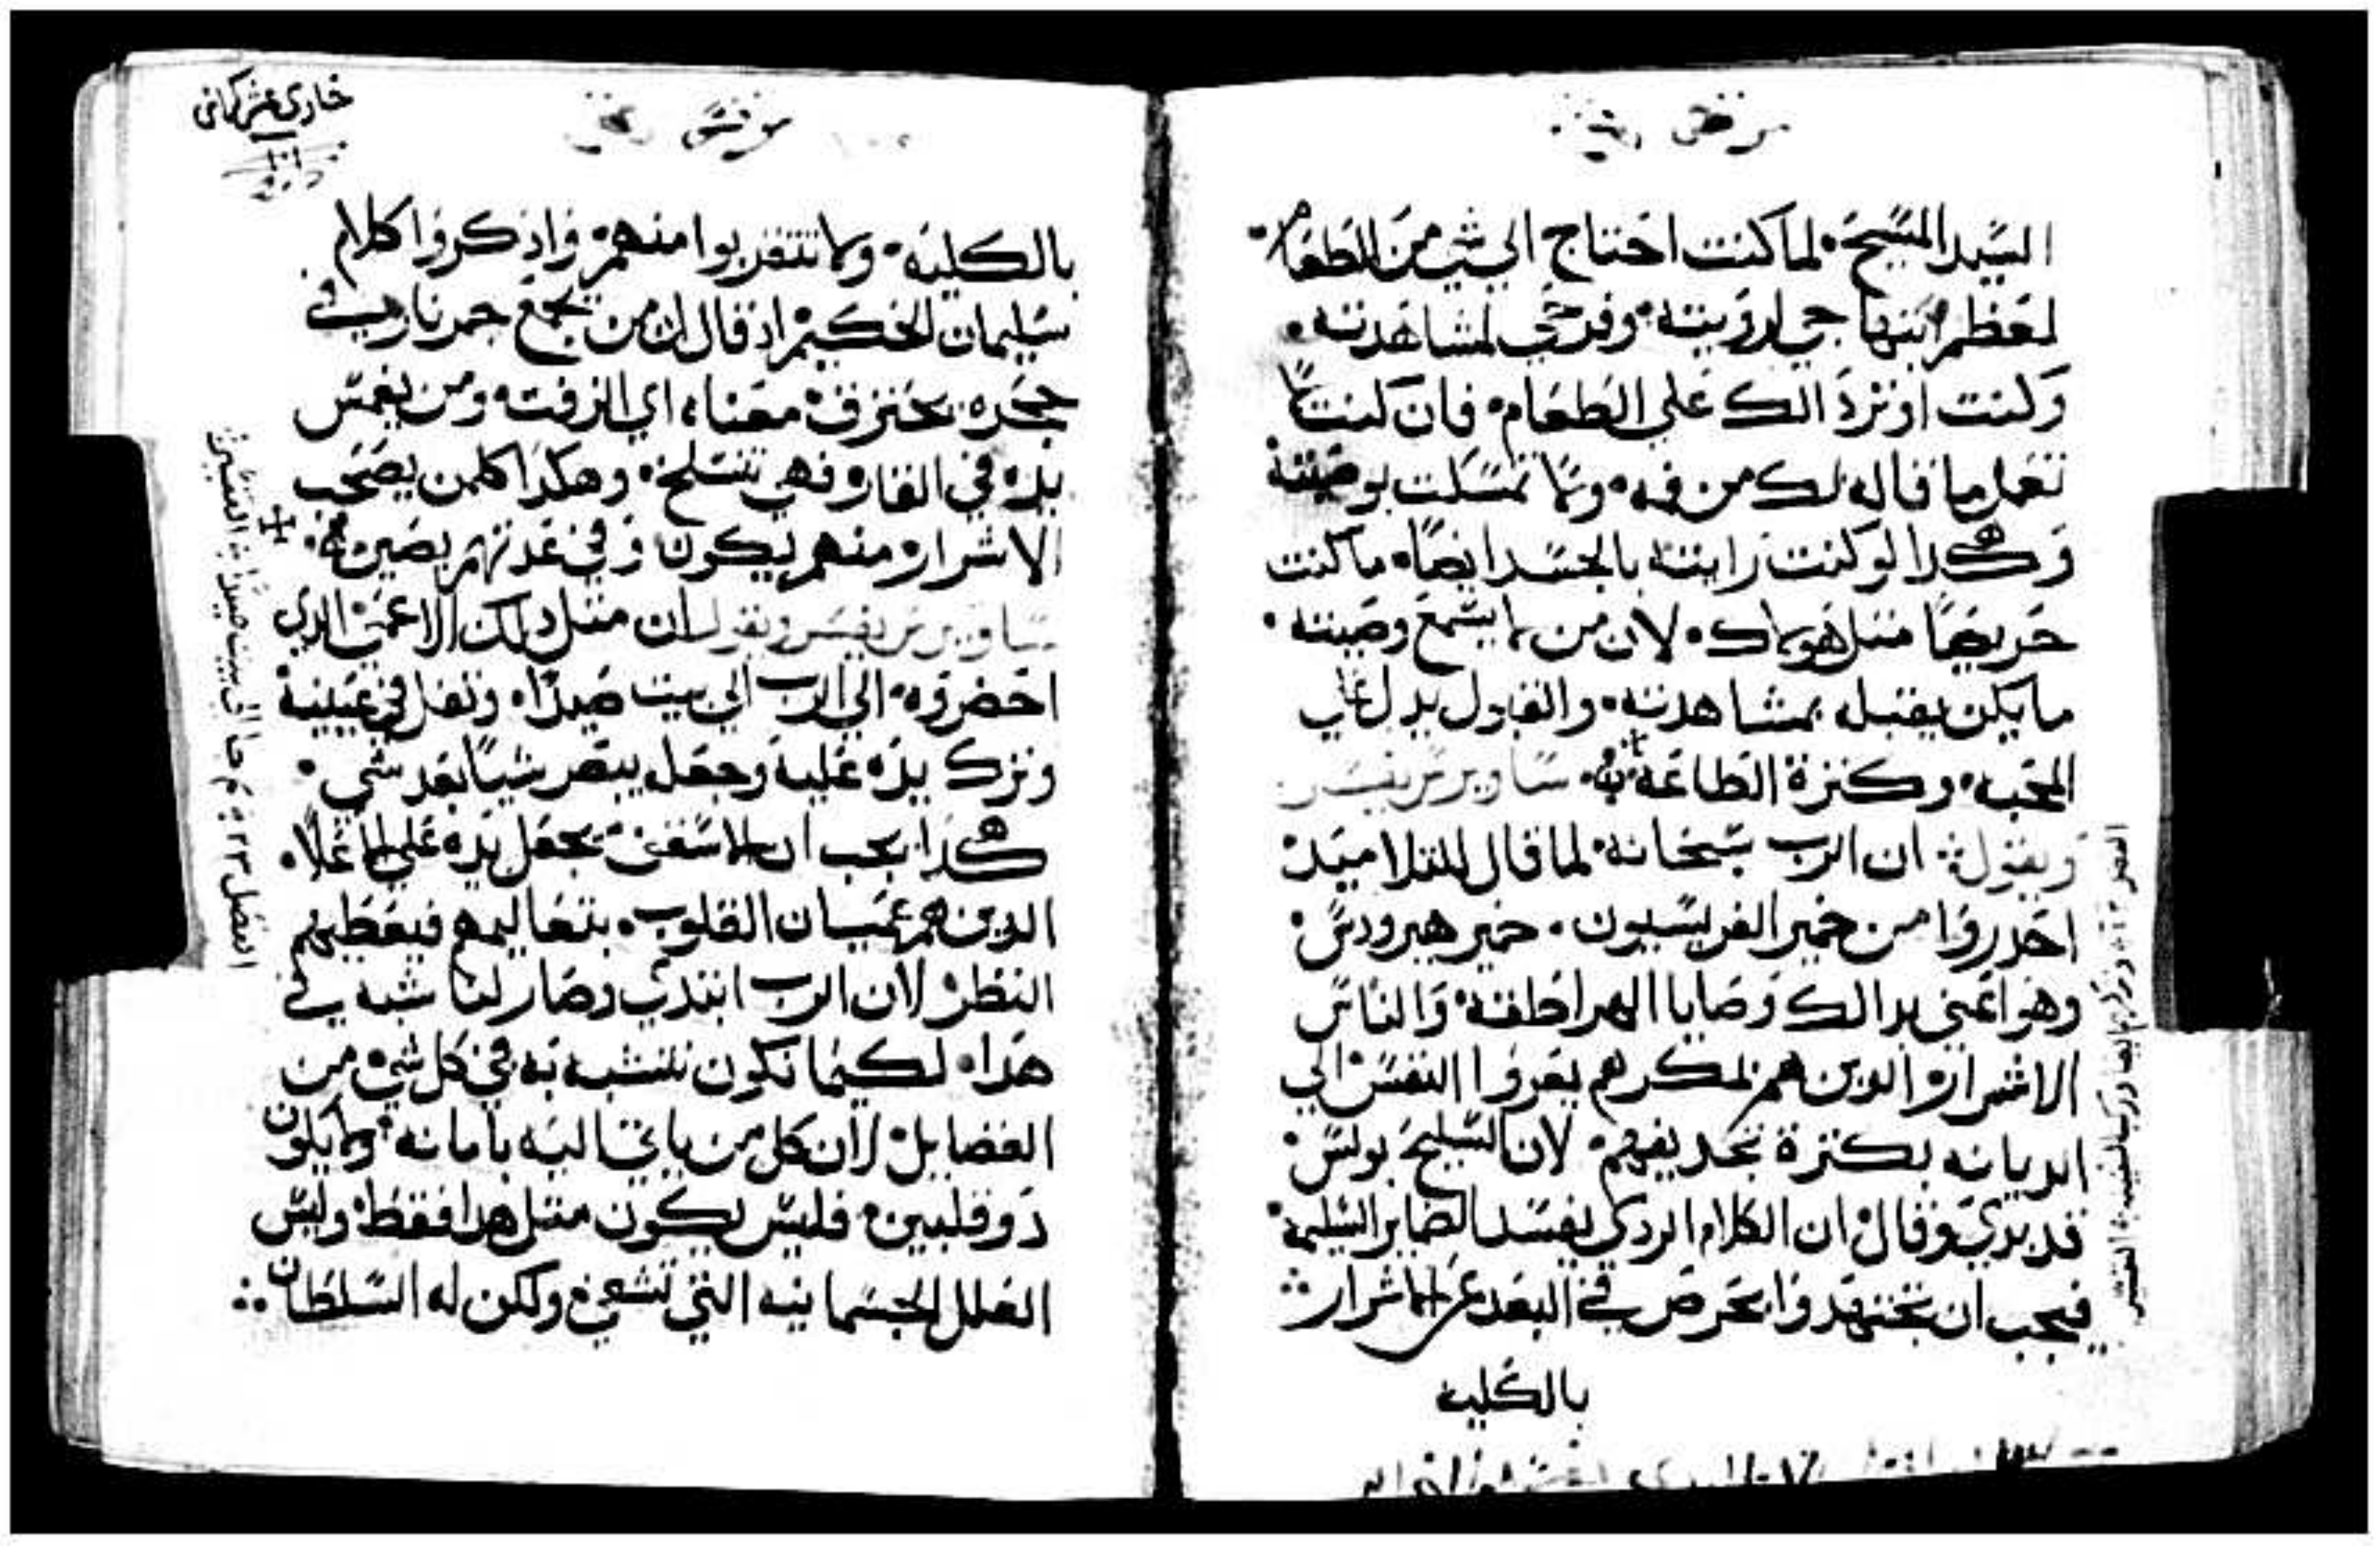 مرقص
السيد المسيح. لما كنت احتاج الي شي من الطعام.
لعظم ابتهاجي لرويته. وفرحي لمشاهدته.
وكنت اوثر دالك علي الطعام. فان كنت لا
تعمل ما قاله لك من فمه. ولا تمسكت بوصيته
وهكدا لو كنت رايته بالجسد ايضا. ما كنت
حريصا متل هولاك. لان من لا يسمع وصيته.
ما يكن يقبله بمشاهدته. والقبول يدل علي
المحبه. وكترة الطاعة له. ساويرس يفسر
ويقول: ان الرب سبحانه. لما قال للتلاميد
احدروا من خمير الفريسيون. خمير هيرودس
وهو اعني بدالك وصايا الهراطقة والناس
الاشرار والدين هم بمكرهم يغروا النفس الي
الديانه بكترة تجديفهم. لان السليح بولس
قد يري وقال ان الكلام الردي يفسد الضماير السليمة
فيجب ان تجتهدوا بحرص في البعد عن الاشرار
بالكليه
حادي عشر كراس
مرقس
بالكليه. ولا تتقربوا منهم. وادكروا كلام
سليمان الحكيم اد قال ان من يجمع جمر نار في
حجره يحترق معناه اي الزفت. ومن يغمس
يده في القار فهي تتسلخ. وهكدا كلمن يصحب
الاشرار منهم يكون وفي عدتهم يصير.
ساويرس يفسر ويقول ان متل دلك الاعمي الدي
احضروه الي الرب الي بيت صيدا. وتفل في عينيه
وترك يده عليه وجعل يبصر شيا بعد شي.
هكدا يجب ان الاسقف يجعل يده علي الاعلا.
الدين هم عميان القلوب. بتعاليمه فيعطيهم
النظر لان الرب ابتدي وصار لنا شبه في
هدا. لكيما نكون نتشبه به في كل شي من
الفضايل لان كل من ياتي اليه بامانه ولا يكون
دو قلبين. فليس يكون متل هدا فقط. وليس
العلل الجسمانيه التي تشفي ولكن له السلطان